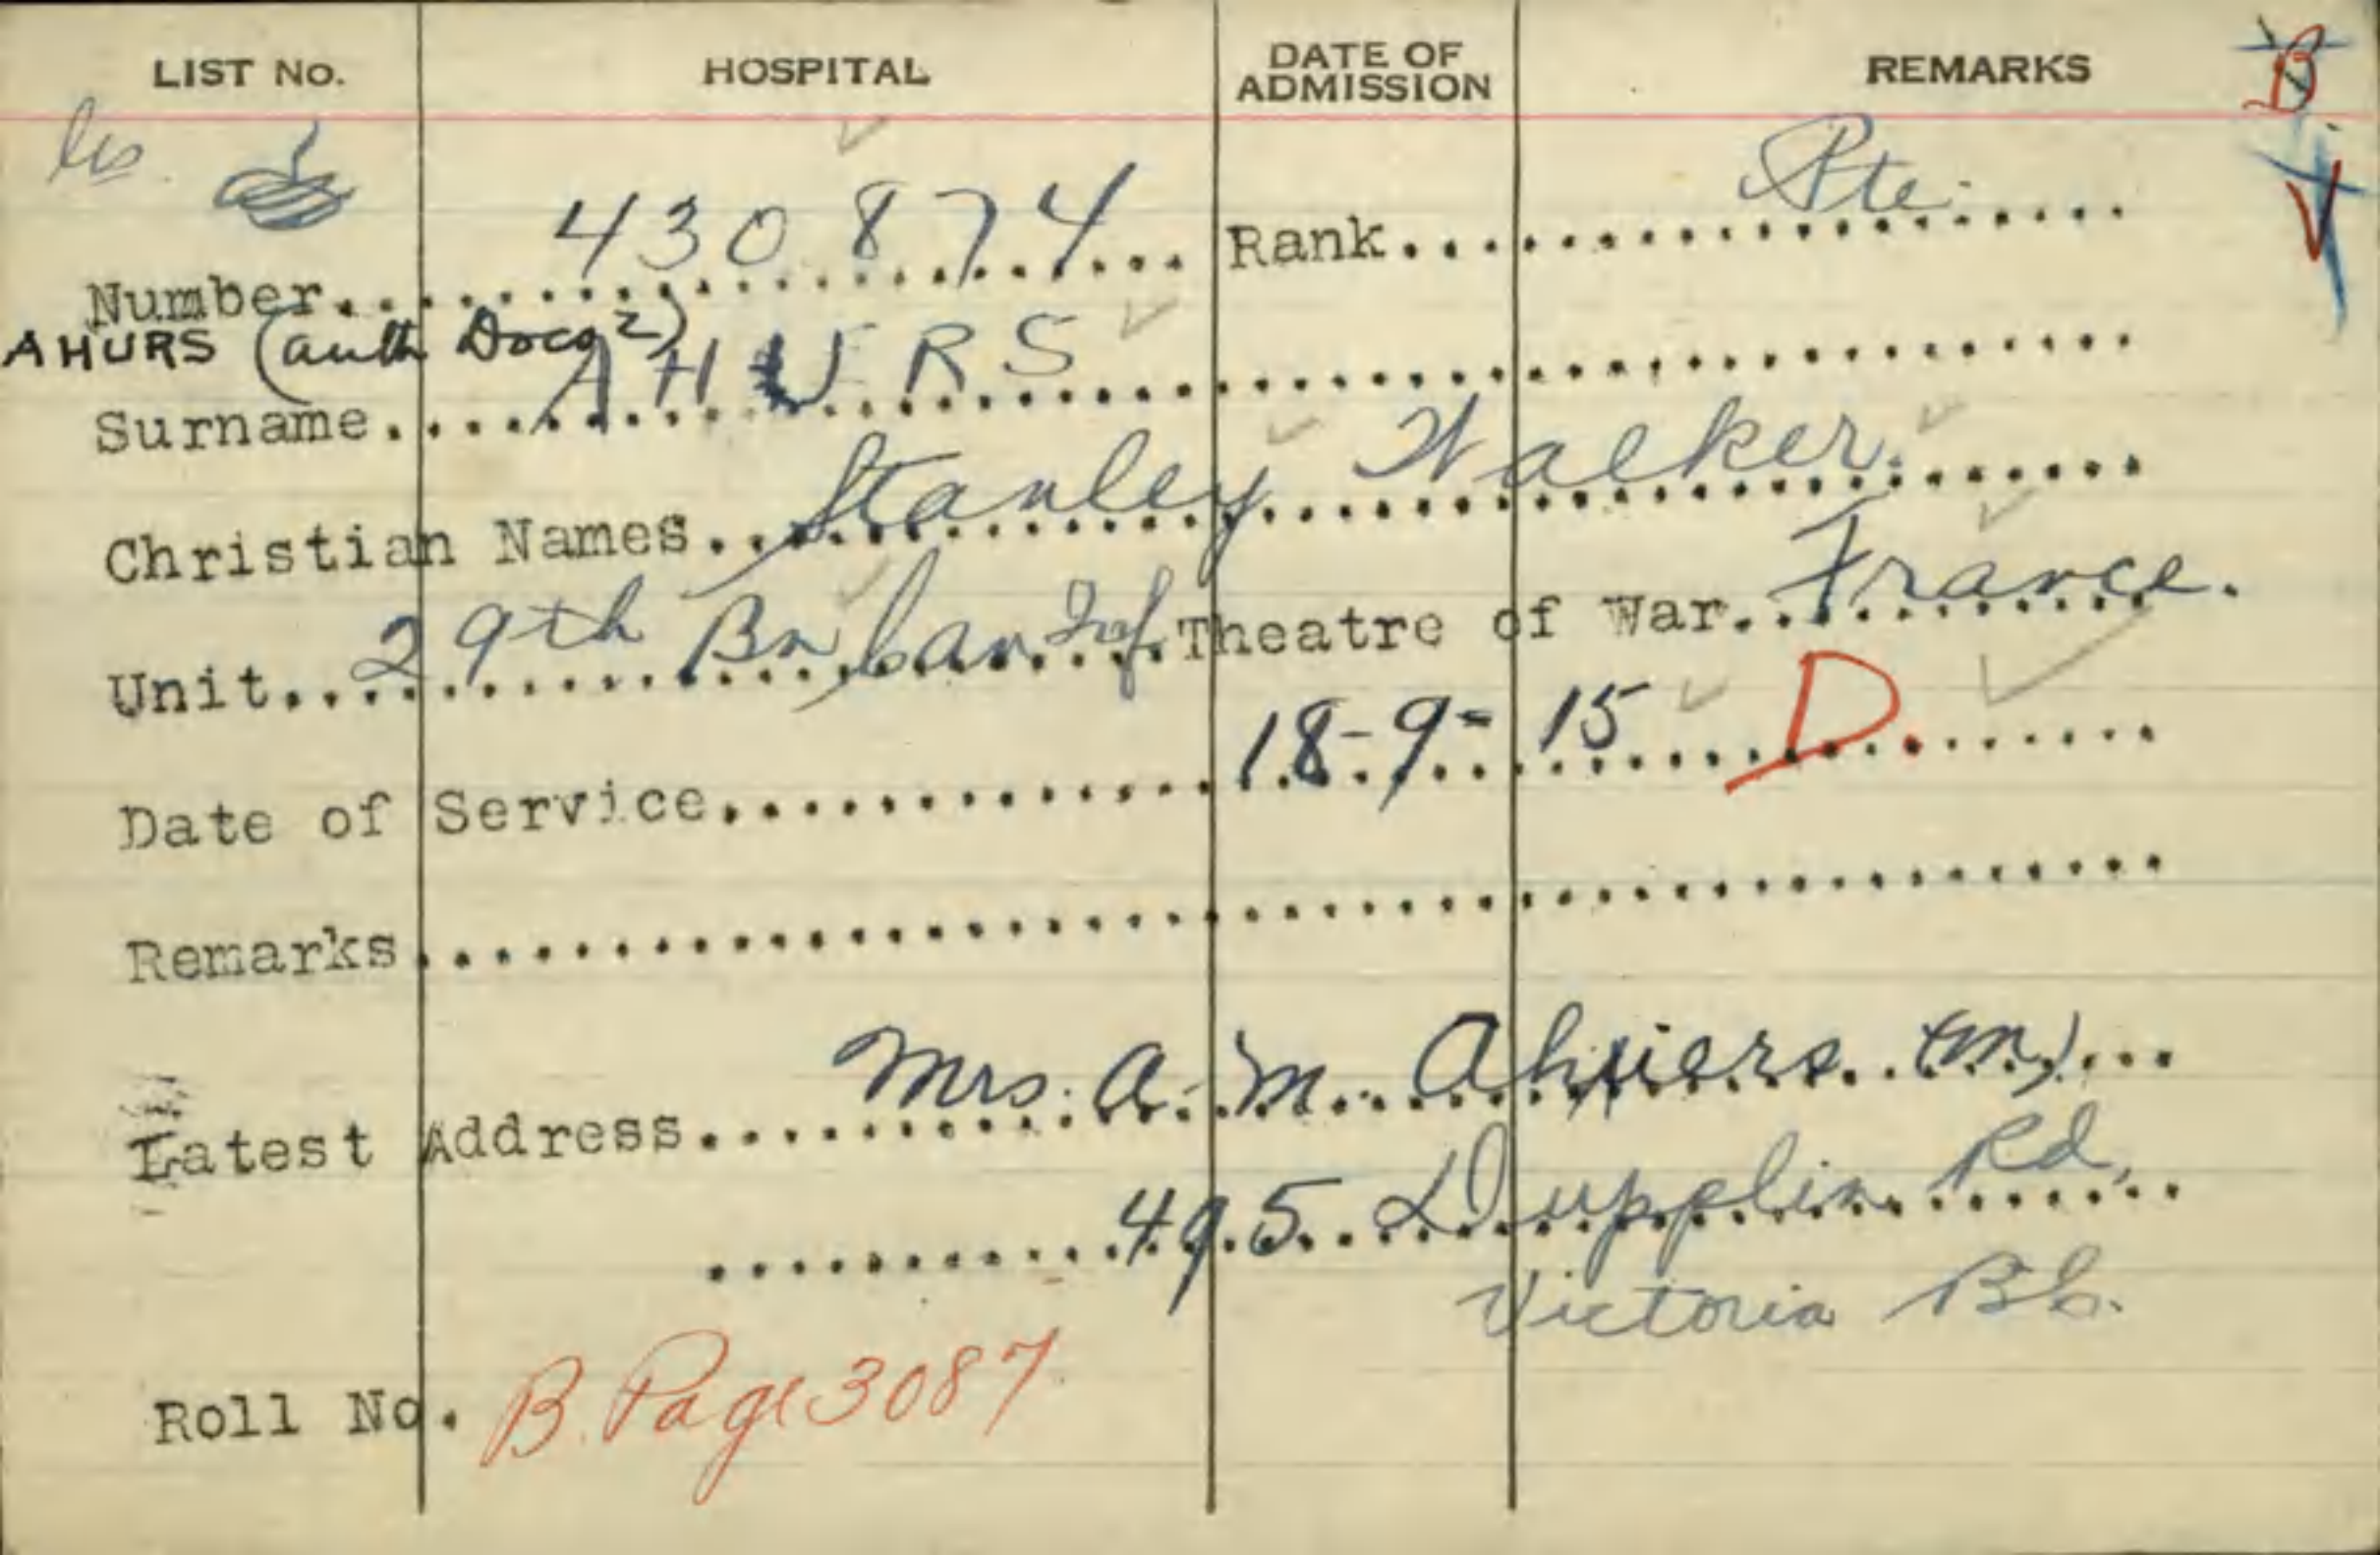 LIST No. HOSPITAL DATE OF ADMISSION REMARKS B
V
Number 430874 Rank Pte
AHURS (auth Docs 2)
Surname AHURS
Christian Names Stanley Walker
Unit 29th Bn Can Inf Theatre of War France.
Date of Service 18-9-15 D.
Remarks
Latest Address Mrs. A. M. (M)
495 Dupplin Rd,
Victoria BC.
Roll No. B. Page 3087